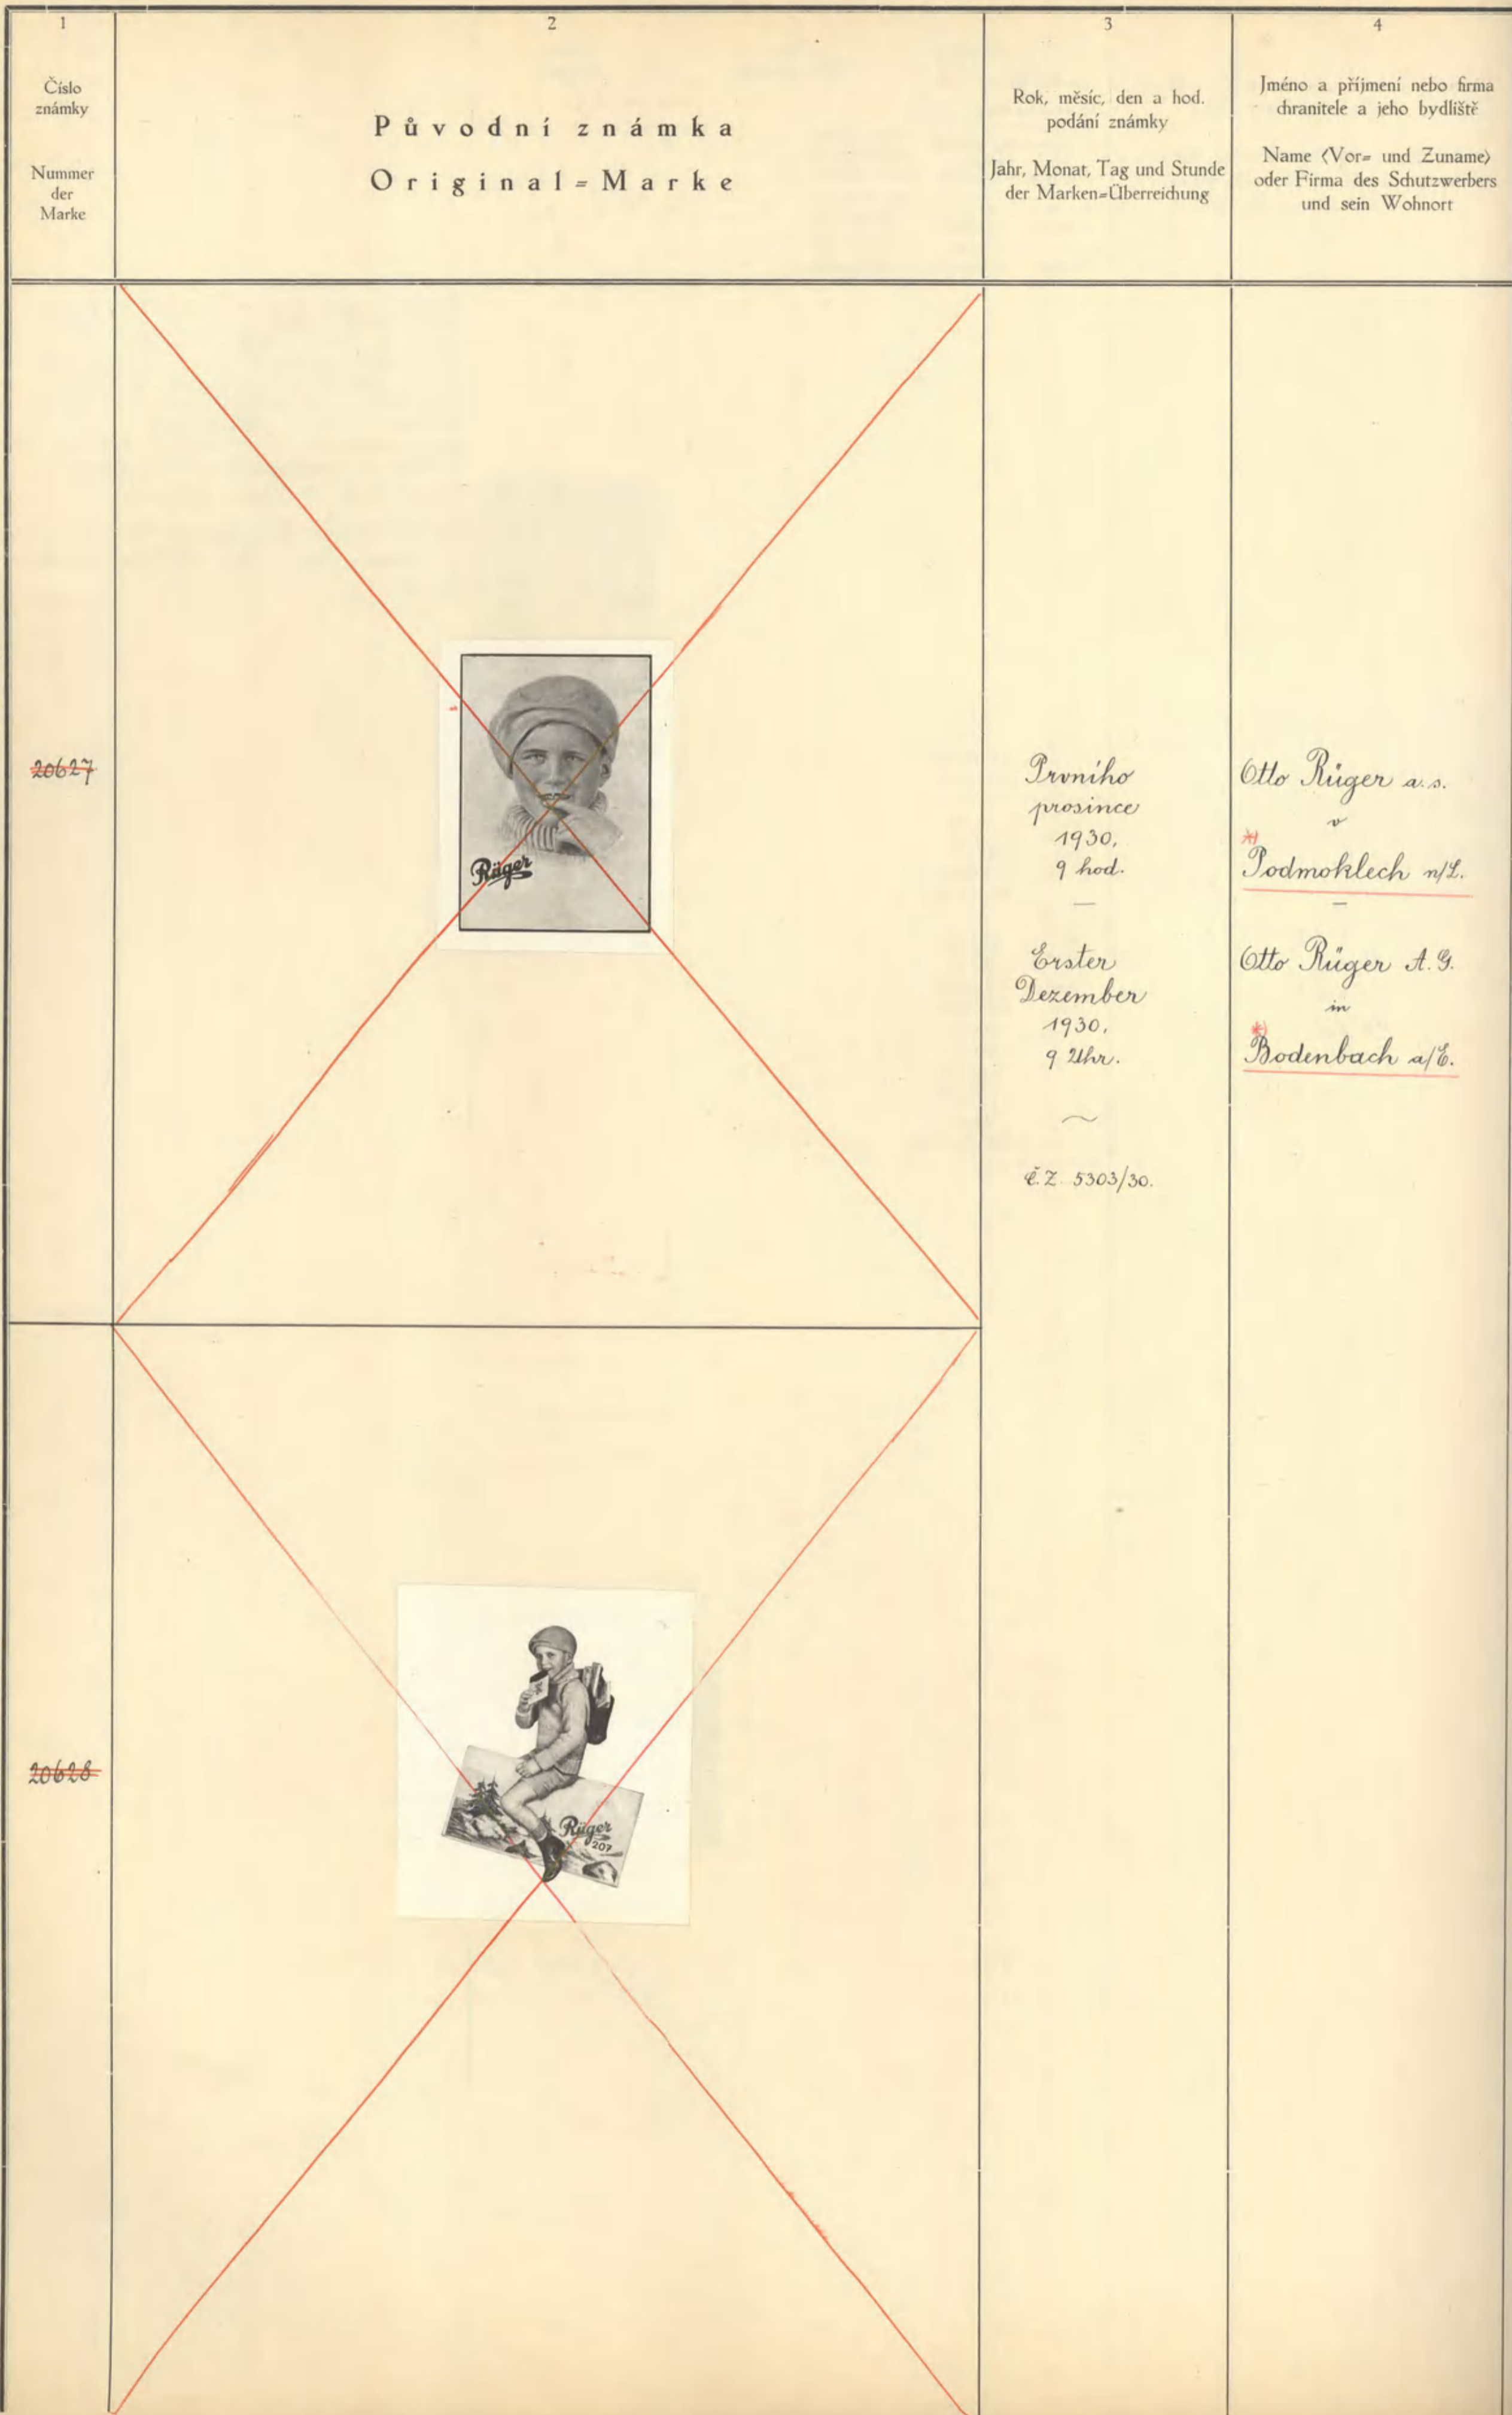 1
Číslo
známky
Nummer
der
Marke
2
Původní známka
Original=Marke
3
Rok, měsíc, den a hod.
podání známky
Jahr, Monat, Tag und Stunde
der Marken=Überreichung
4
Jméno a příjmení nebo firma
chranitele a jeho bydliště
Name (Vor= und Zuname)
oder Firma des Schutzwerbers
und sein Wohnort
20627
Rüger
Prvního
prosince
1930,
9 hod.
—
Erster
Dezember
1930,
9 Uhr.
č.Z. 5303/30.
Otto Rüger a.s.
v
*)
Podmoklech n/L.
—
Otto Rüger A.G.
in
*)
Bodenbach a/E.
20628
Rüger
207